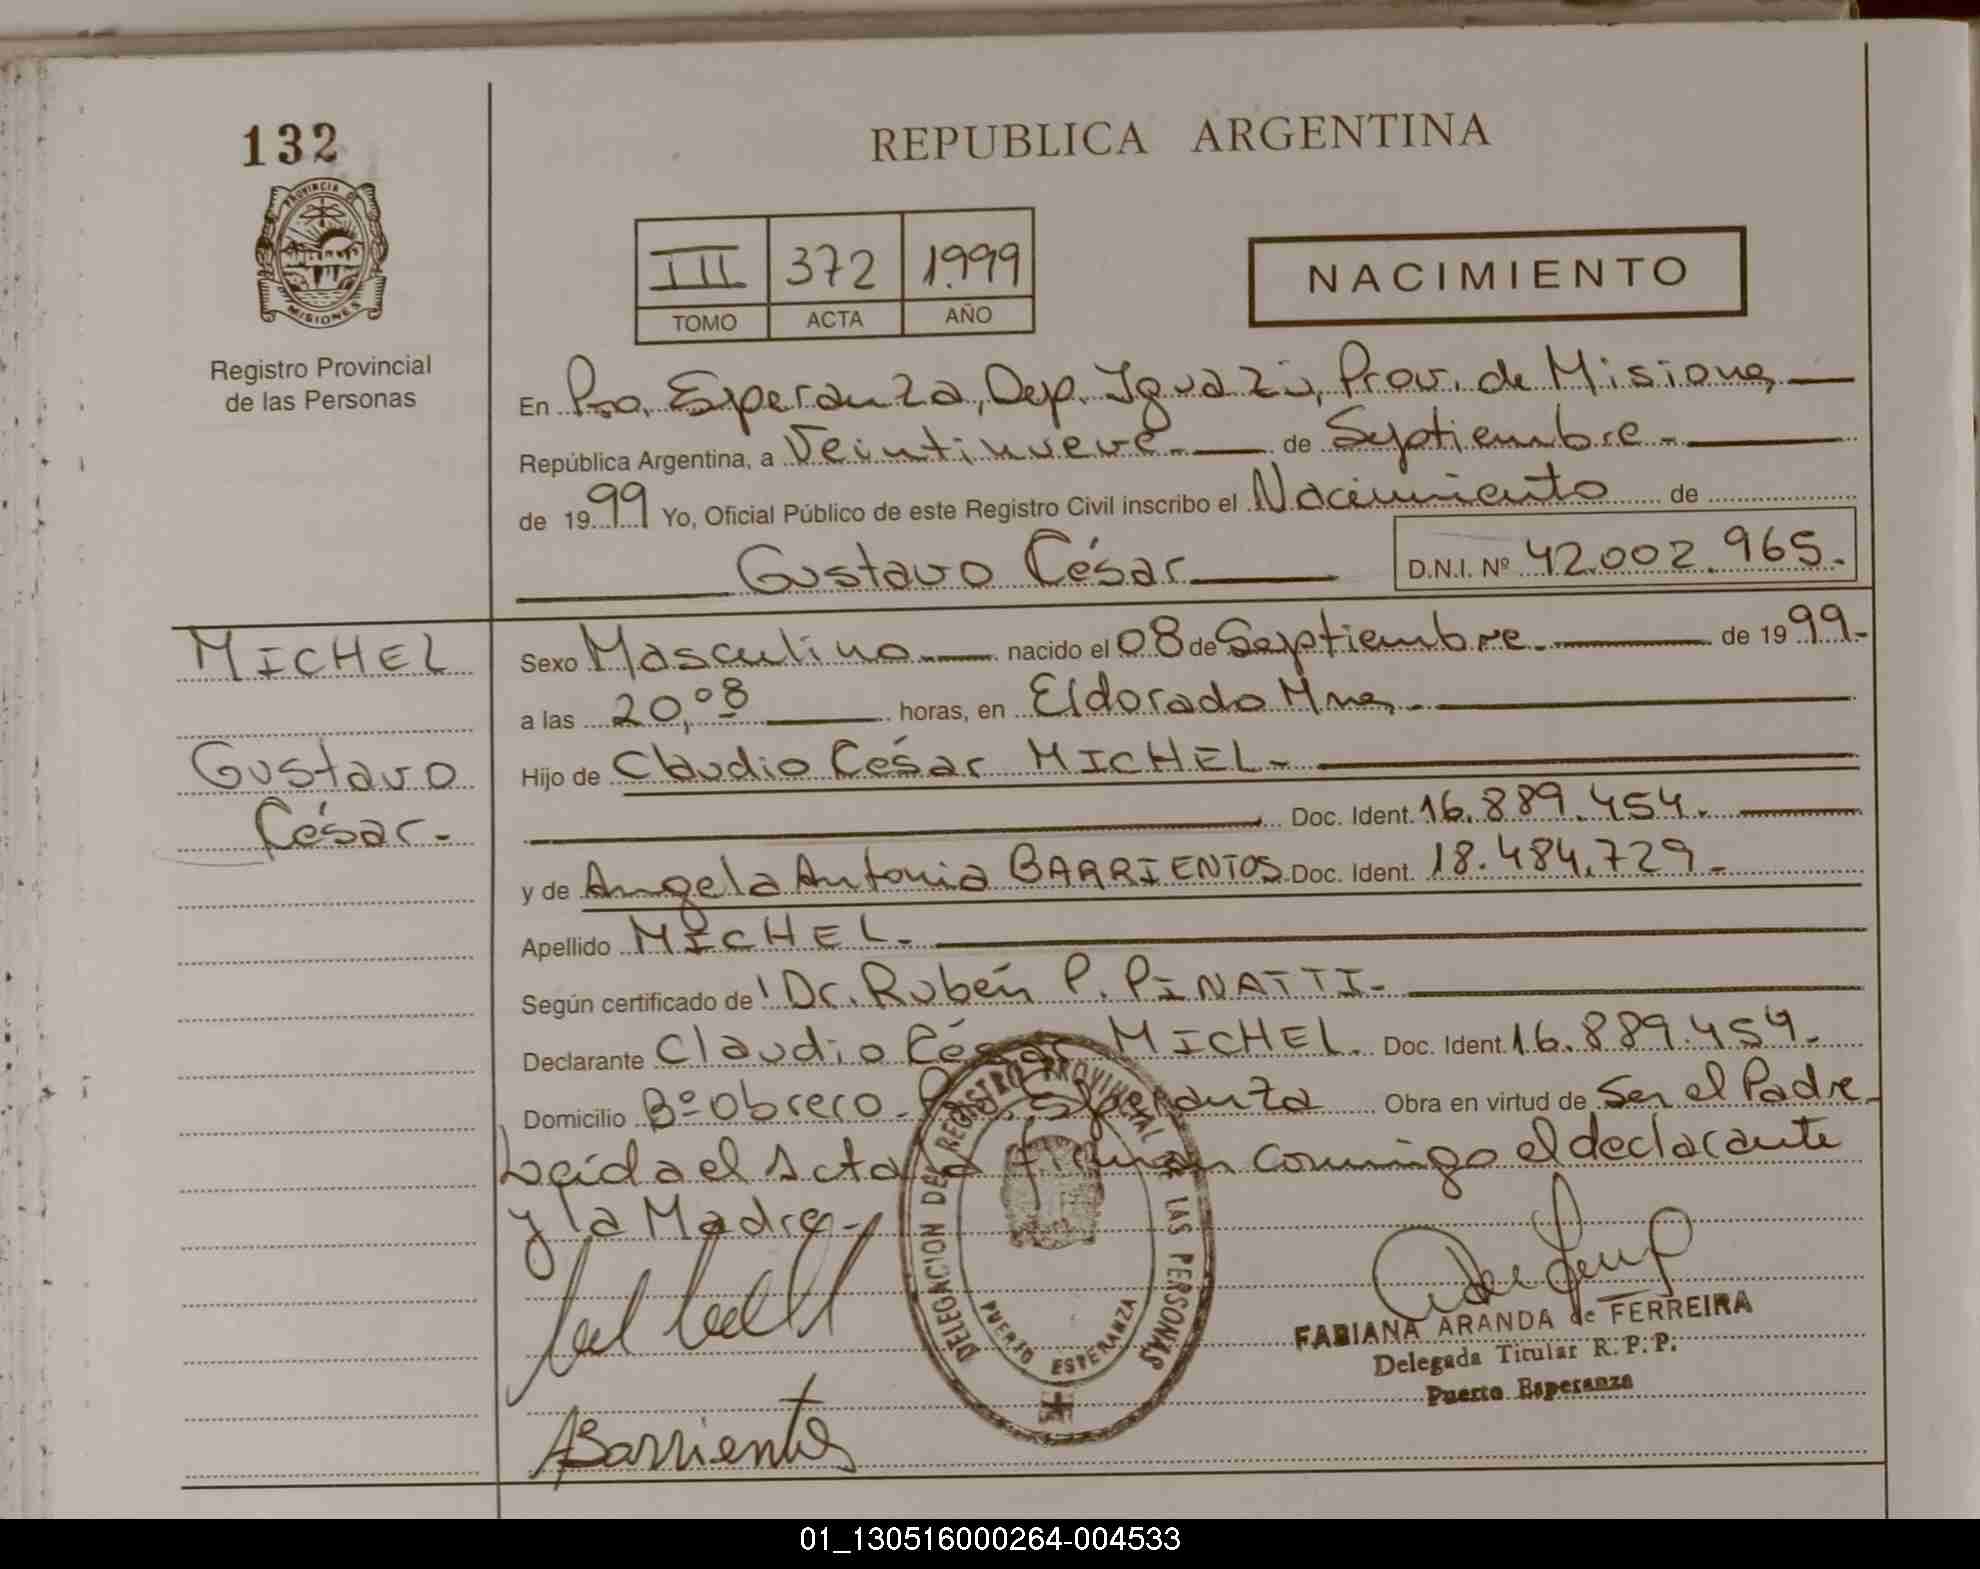 132
REPUBLICA ARGENTINA
PROVINCIA DE
MISIONES
Registro Provincial
de las Personas
III 372 1.999
TOMO ACTA AÑO
NACIMIENTO
En Pto. Esperanza, Dep. Iguazú, Prov. de Misiones
República Argentina, a Veintinueve.- de Septiembre.-
de 1999 Yo, Oficial Público de este Registro Civil inscribo el Nacimiento de
Gustavo César D.N.I. Nº 42.002.965.
MICHEL
Gustavo
César.-
Sexo Masculino nacido el 08 de Septiembre.- de 1999.-
a las 20,08 horas, en Eldorado Mnes.-
Hijo de Claudio César MICHEL.-
Doc. Ident. 16.889.454.
y de Angela Antonia BARRIENTOS Doc. Ident. 18.484.729.-
Apellido MICHEL.-
Según certificado de Dr. Rubén P. PINATTI.-
Declarante Claudio César MICHEL. Doc. Ident. 16.889.454.-
Domicilio Bº Obrero. Pto. Esperanza Obra en virtud de Ser el Padre
Leida el Acta la firman conmigo el declarante
y la Madre.-
DELEGACION DEL REGISTRO PROVINCIAL DE LAS PERSONAS
PUERTO ESPERANZA
FABIANA ARANDA de FERREIRA
Delegada Titular R.P.P.
Puerto Esperanza
ABarrientos
01_130516000264-004533